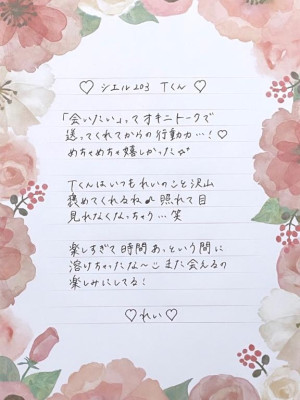 ♡ シエル203 Tくん ♡
「会いたい」ってオキニトークで
送ってくれてからの行動力…!♡
めちゃめちゃ嬉しかった☆
Tくんはいつもれいのこと沢山
褒めてくれるね 照れて目
見れなくなっちゃう…笑
楽しすぎて時間あっという間に
溶けちゃったな〜 また会えるの
楽しみにしてる!
♡ れい ♡